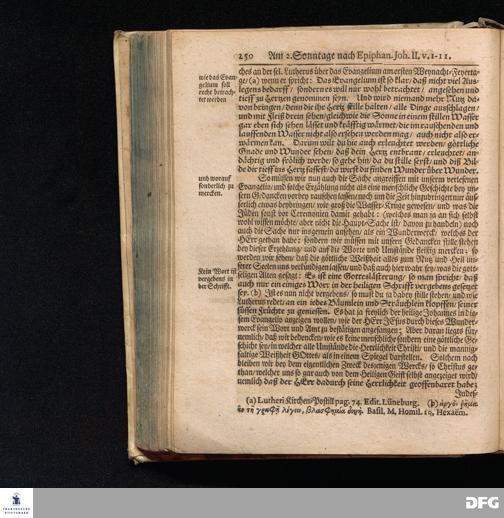 250 Am 2. Sonntage nach Epiphan. Joh. II. v. 1-11.
ches an der sel. Lutherus über das Evangelium am ersten Weynacht-Feyerta-
ge/ (a) wenn er spricht: Das Evangelium ist so klar/ daß nicht viel Aus-
legens bedarff/ sondern es will nur wohl betrachtet/ angesehen und
tieff zu Hertzen genommen seyn. Und wird niemand mehr Nutz da-
von bringen/ denn die ihr Hertz stille halten/ alle Dinge ausschlagen/
und mit Fleiß drein sehen/ gleichwie die Sonne in einem stillen Wasser
gar eben sich sehen lässet und kräfftig wärmet/ die im rauschenden und
lauffenden Wasser nicht also ersehen werden mag/ auch nicht also er-
wärmen kan. Darum wilt du hie auch erleuchtet werden/ göttliche
Gnade und Wunder sehen/ daß dein Hertz entbrant/ erleuchtet/ an-
dächtig und frölich werde/ so gehe hin/ da du stille seyst/ und diß Bil-
de dir tieff ins Hertz fassest/ da wirst du finden Wunder über Wunder.
wie das Evan-
gelium soll
recht betrach-
tet werden
So müssen wir nun auch die Sache angreiffen mit unserm verlesenen
Evangelio/ und solche Erzählung nicht als eine menschliche Geschichte bey un-
sern Gedancken vorbey rauschen lassen/ noch um die Zeit hinzubringen nur äus-
serlich etwas beybringen/ wie groß die Wasser-Krüge gewesen/ und was die
Jüden sonst vor Ceremonien damit gehabt: (welches man ja an sich selbst
wohl wissen möchte/ aber nicht die Haupt-Sache ist/ davon zu handeln) noch
auch die Sache nur insgemein ansehen/ als ein Wunderwerck/ welches der
HErr gethan habe: sondern wir müssen mit unsern Gedancken stille stehen
bey dieser Erzehlung/ und auf die Worte und Umstände fleißig mercken: so
werden wir sehen/ daß die göttliche Weißheit alles zum Nutz und Heil un-
serer Seelen uns verkündigen lassen/ und daß auch hier wahr sey/ was die gott-
seligen Alten gesagt: Es ist eine Gotteslästerung/ so man spricht/ daß
auch nur ein einiges Wort in der heiligen Schrifft vergebens gesetzet
sey. (b) Ist es nun nicht vergebens/ so must du ja dabey stille stehen/ und wie
Lutherus redet/ an ein iedes Bäumlein und Sträuchlein klopffen/ seiner
süssen Früchte zu geniessen. Es hat ja freylich der heilige Johannes in die-
sem Evangelio anzeigen wollen/ wie der HErr JEsus durch dieses Wunder-
werck sein Wort und Amt zu bestätigen angefangen; Aber daran lieget für-
nemlich/ daß wir bedencken/ wie es keine menschliche sondern eine göttliche Ge-
schicht sey/ in welcher alle Umstände die Herrlichkeit Christi/ und die mannig-
faltige Weißheit GOttes/ als in einem Spiegel darstellen. Solchem nach
bleiben wir bey dem eigentlichen Zweck desjenigen Wercks/ so Christus ge-
than/ welcher uns so gar auch von dem Heiligen Geist selbst angezeiget wird/
nemlich daß der HErr dadurch seine Herrlichkeit geoffenbaret habe;
Indeß-
und worauf
sonderlich zu
mercken.
Kein Wort ist
vergebens in
der Schrifft.
(a) Lutheri Kirchen-Postill pag. 74. Edit. Lüneburg. (b) ἀργὸν ῥῆμα
ἐν τῇ γραφῇ λέγειν, βλασφημία
Basil. M. Homil. 10. Hexaëm.
FRANCKESCHE
STIFTUNGEN
DFG